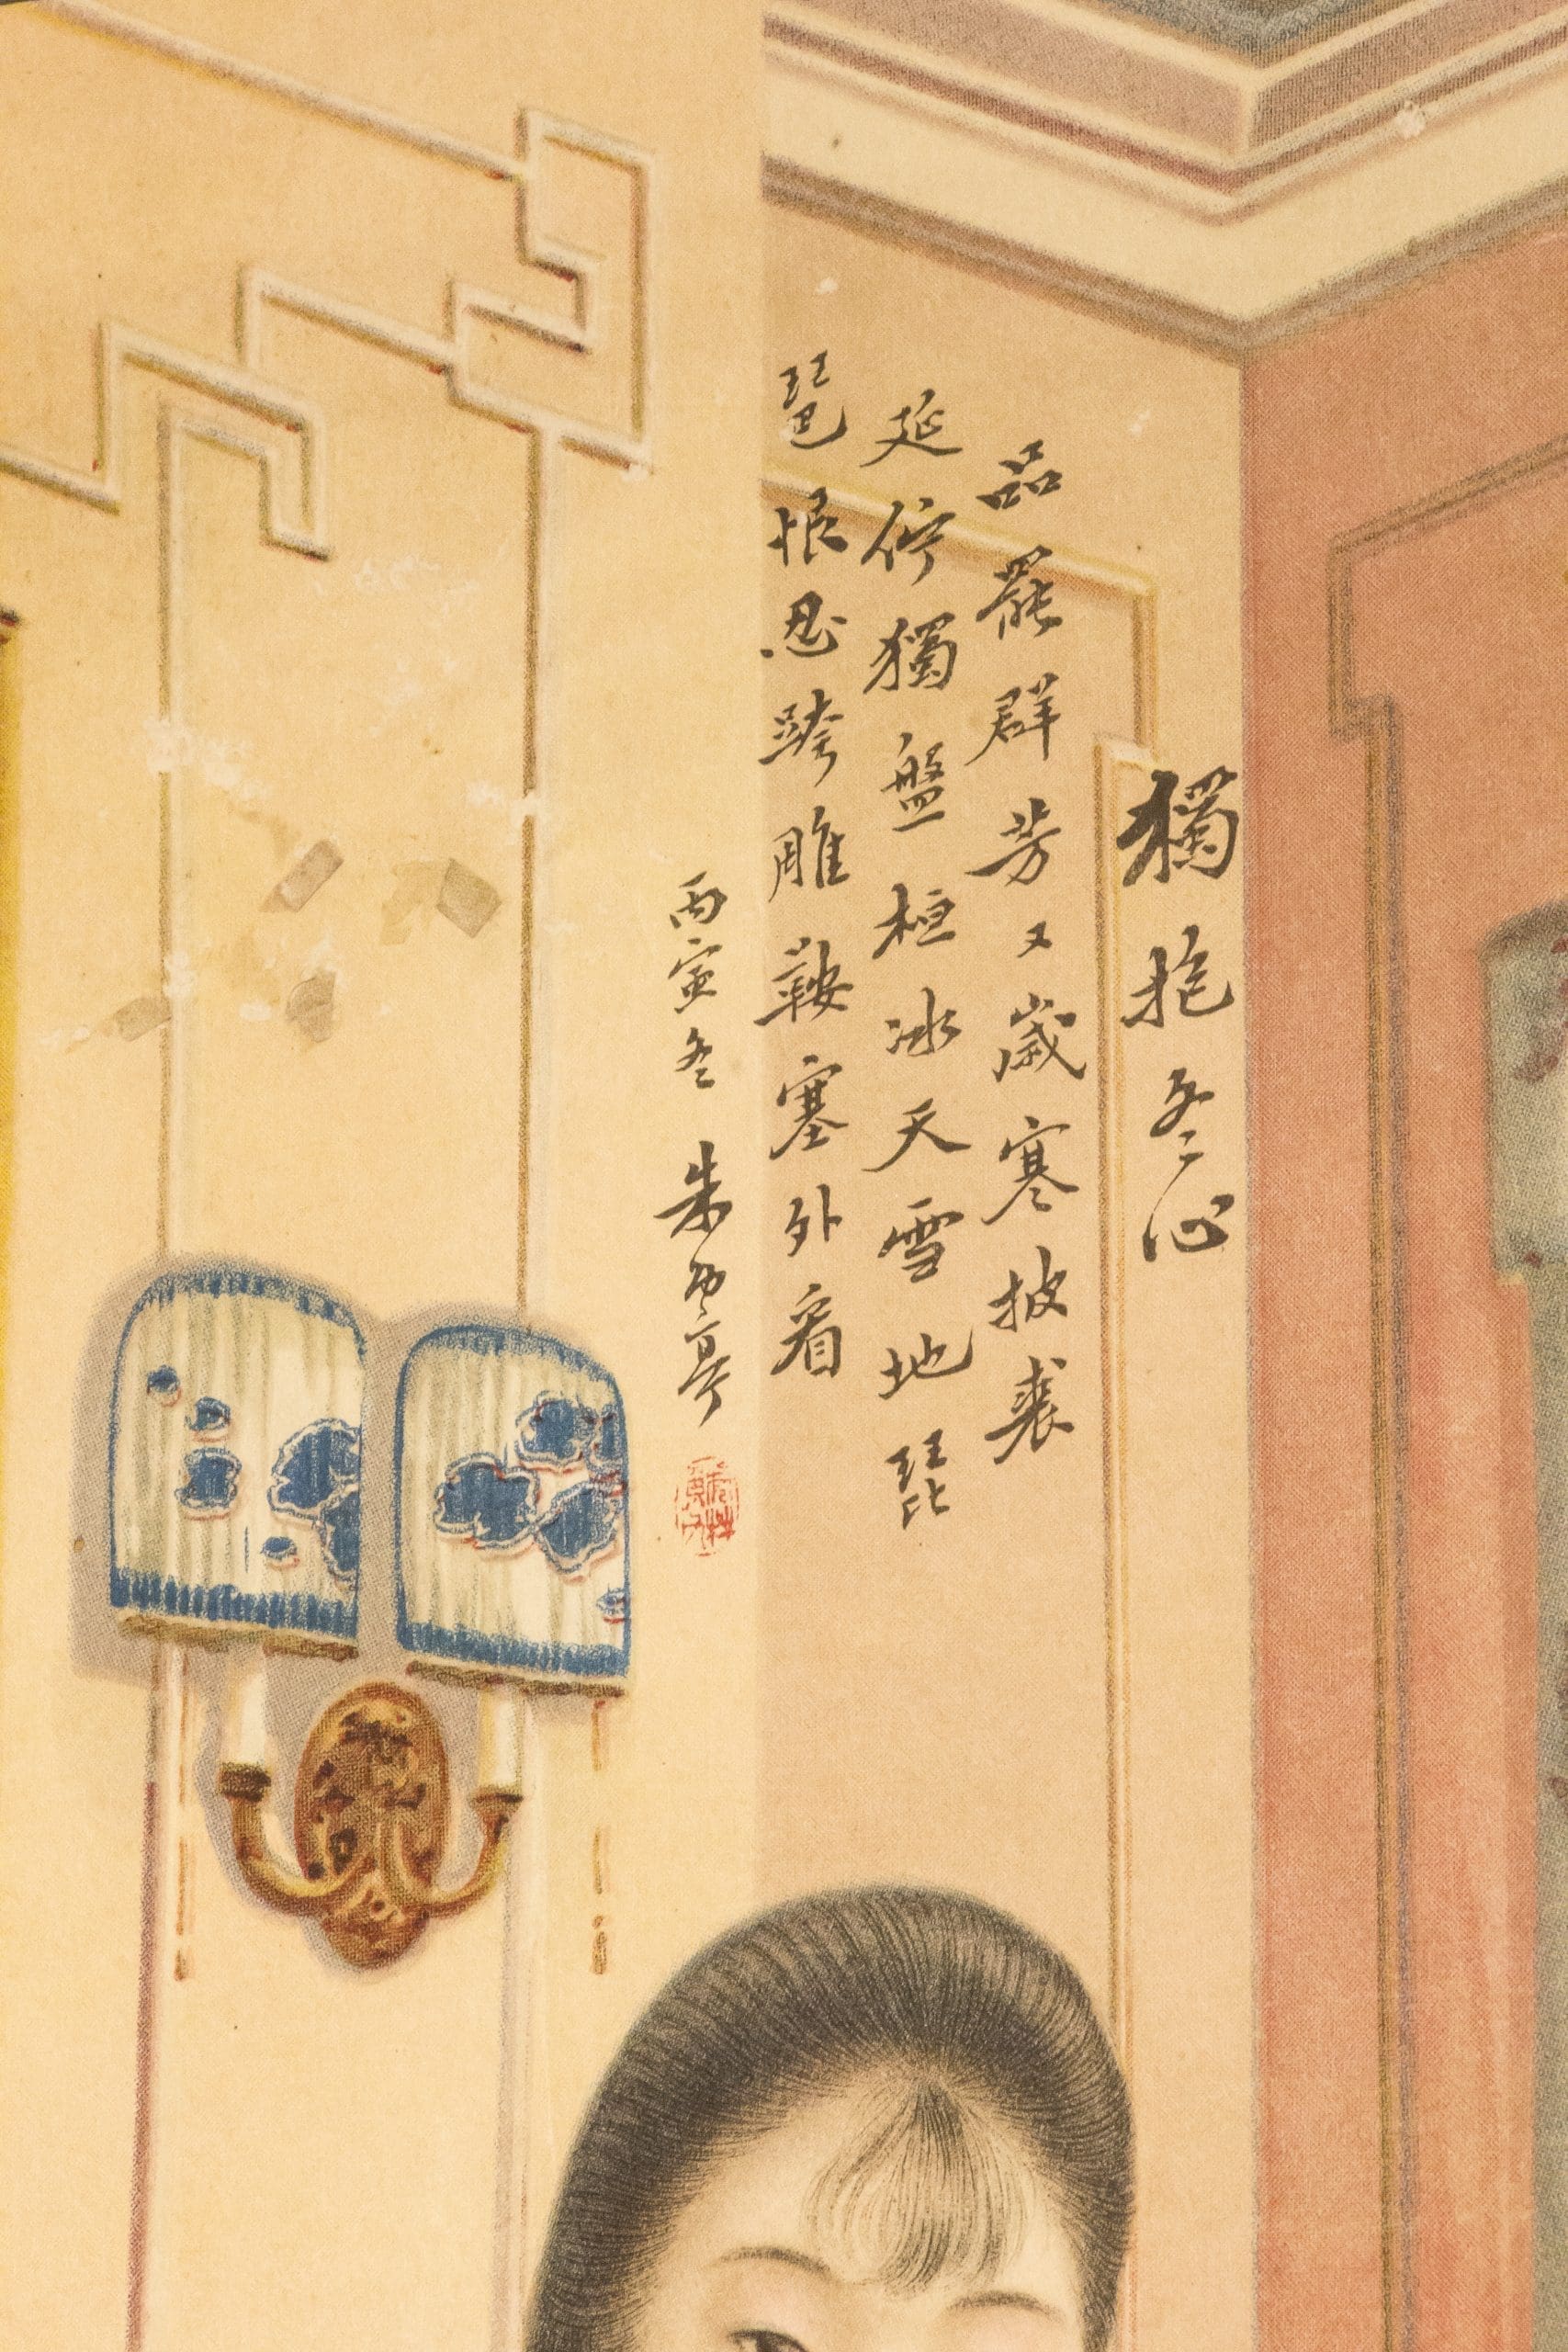 獨抱冬心
品罷群芳又歲寒披裘
延佇獨盤桓冰天雪地琵
琶恨忍跨雕鞍塞外看
丙寅冬 朱亭